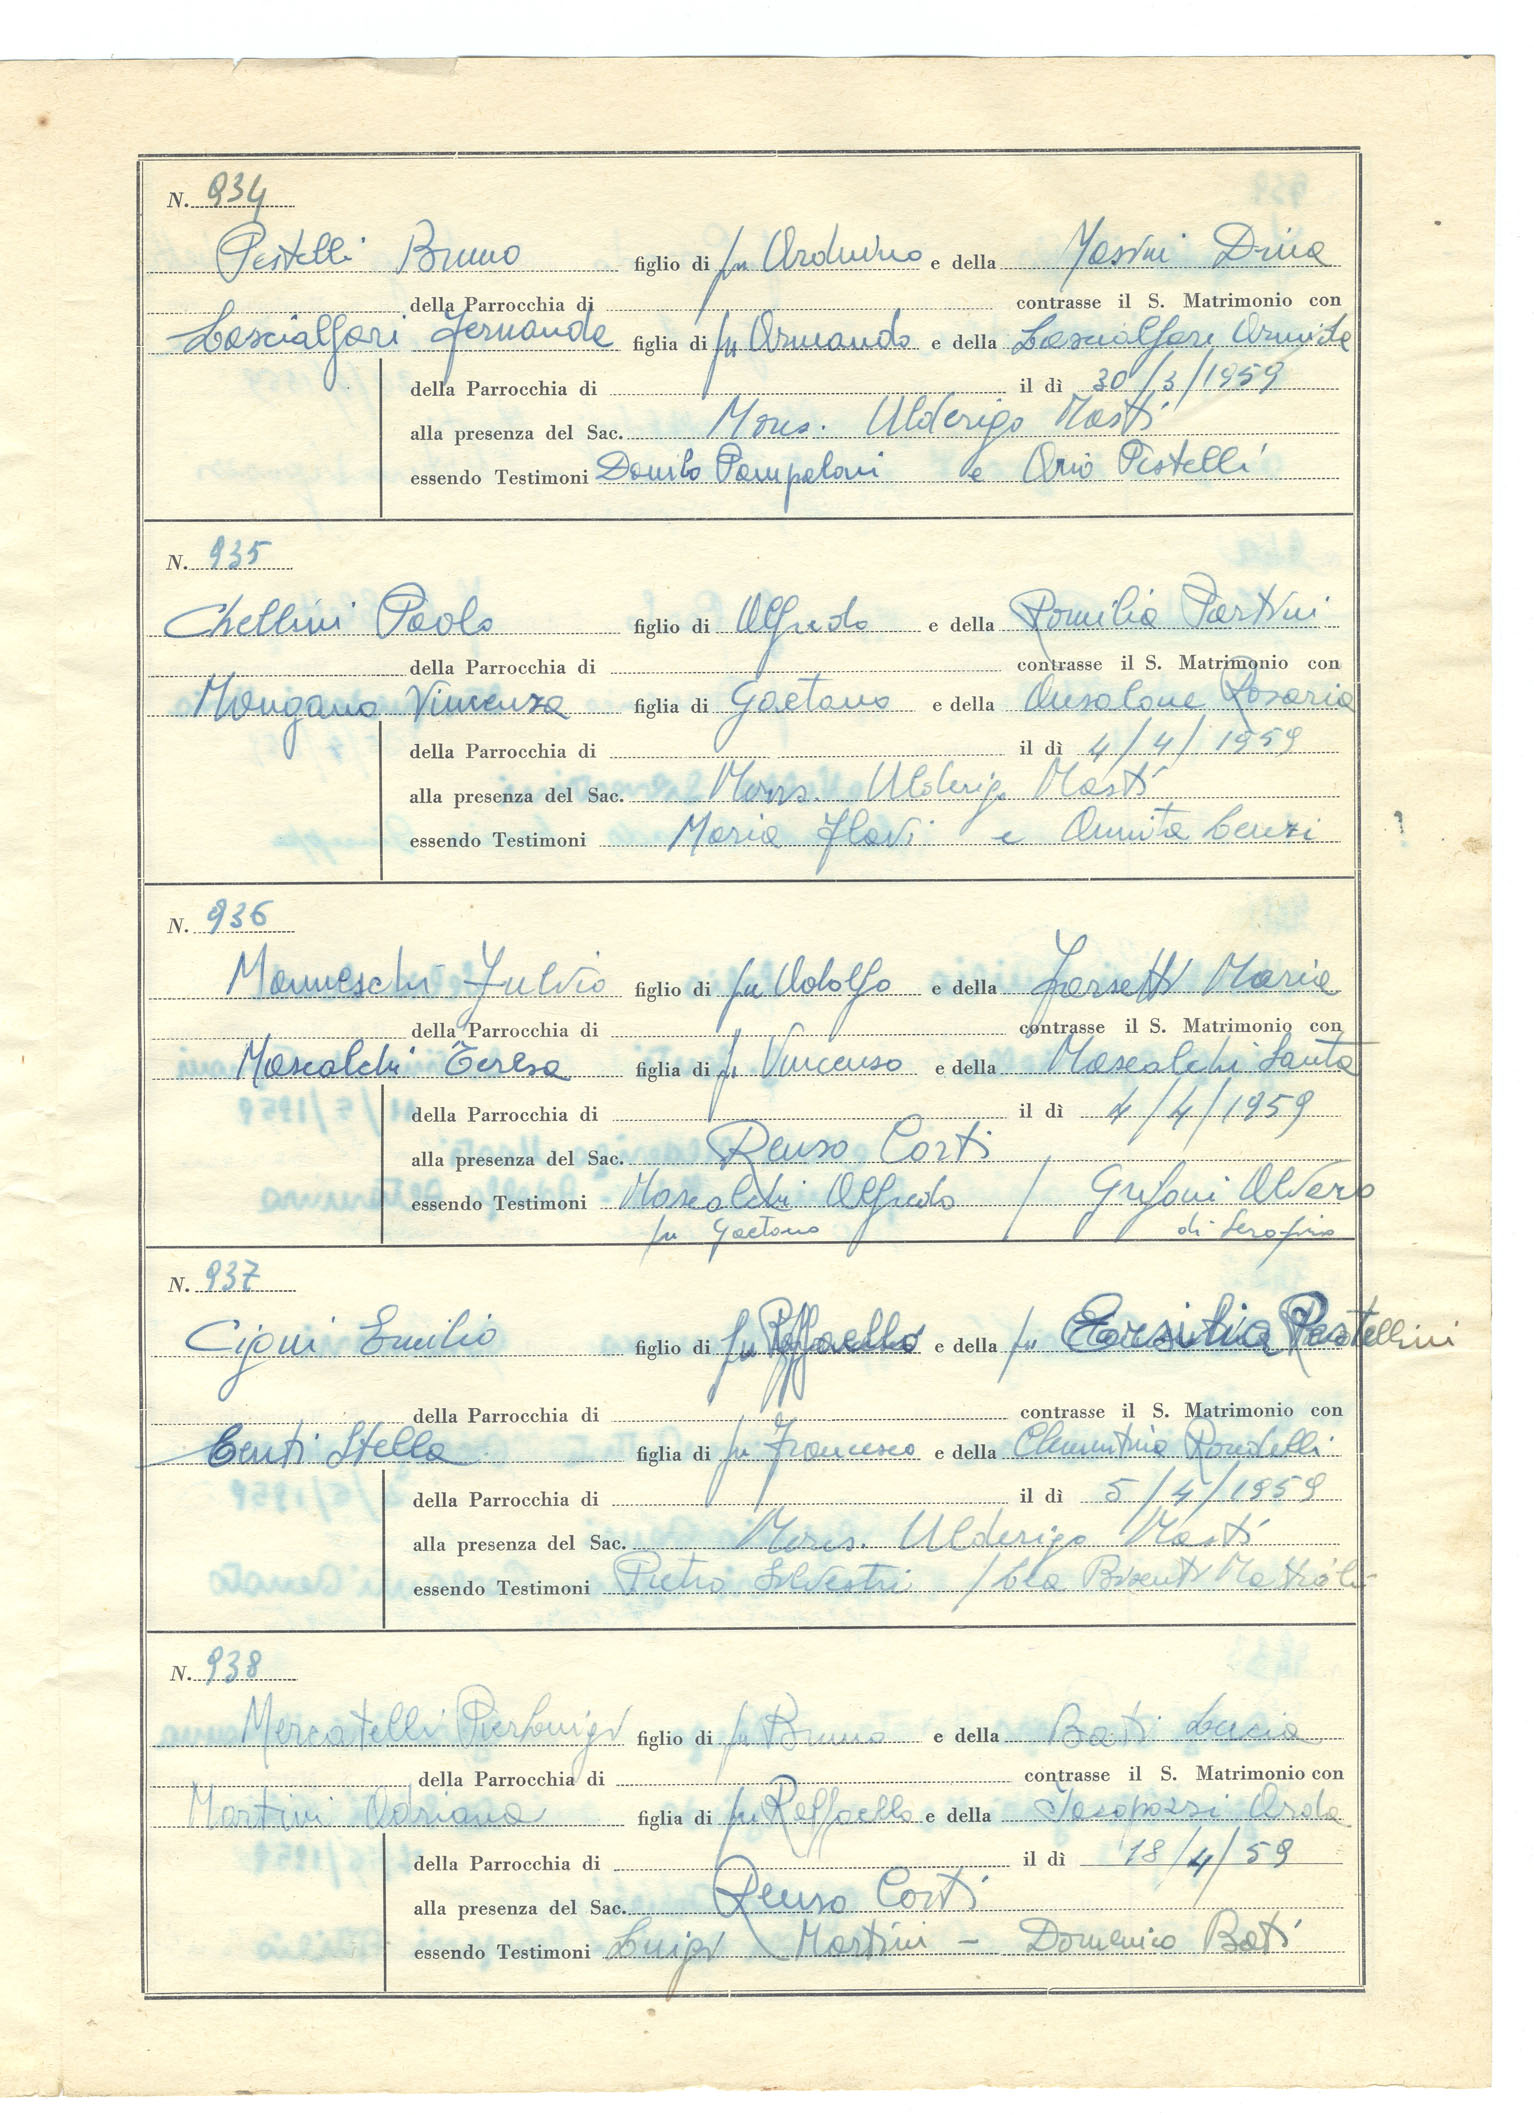 N. 934
Pestelli Bruno figlio di fu Arduino e della Masini Dina
della Parrocchia di contrasse il S. Matrimonio con
Lascialfari Fernanda figlia di fu Armando e della Lascialfari Armida
della Parrocchia di il dì 30/3/1959
alla presenza del Sac. Mons. Ulderigo Masti
essendo Testimoni Danilo Pampaloni e Ario Pestelli
N. 935
Chellini Paolo figlio di Alfredo e della Romilia Partini
della Parrocchia di contrasse il S. Matrimonio con
Mongano Vincenza figlia di Gaetano e della Ansalone Rosaria
della Parrocchia di il dì 4/4/1959
alla presenza del Sac. Mons. Ulderigo Masti
essendo Testimoni Maria Flavi e Annita Cenzi
N. 936
Manneschi Fulvio figlio di fu Adolfo e della Farsetti Maria
della Parrocchia di contrasse il S. Matrimonio con
Mascalchi Teresa figlia di fu Vincenso e della Mascalchi Santa
della Parrocchia di il dì 4/4/1959
alla presenza del Sac. Renso Corti
essendo Testimoni Mascalchi Alfredo / Grifoni Alvero
fu Gaetano di Serafino
N. 937
Cioni Emilio figlio di fu Raffaello e della fu Ersilia Pastellini
della Parrocchia di contrasse il S. Matrimonio con
Centi Stella figlia di fu Francesco e della Clementina Rondelli
della Parrocchia di il dì 5/4/1959
alla presenza del Sac. Mons. Ulderigo Masti
essendo Testimoni Pietro Silvestri /
N. 938
Mercatelli Pierluigi figlio di fu Bruno e della Bati Lucia
della Parrocchia di contrasse il S. Matrimonio con
Martini Adriana figlia di fu Raffaello e della Jacopozzi Arda
della Parrocchia di il dì 18/4/59
alla presenza del Sac. Renso Corti
essendo Testimoni Luigi Martini - Domenico Bati